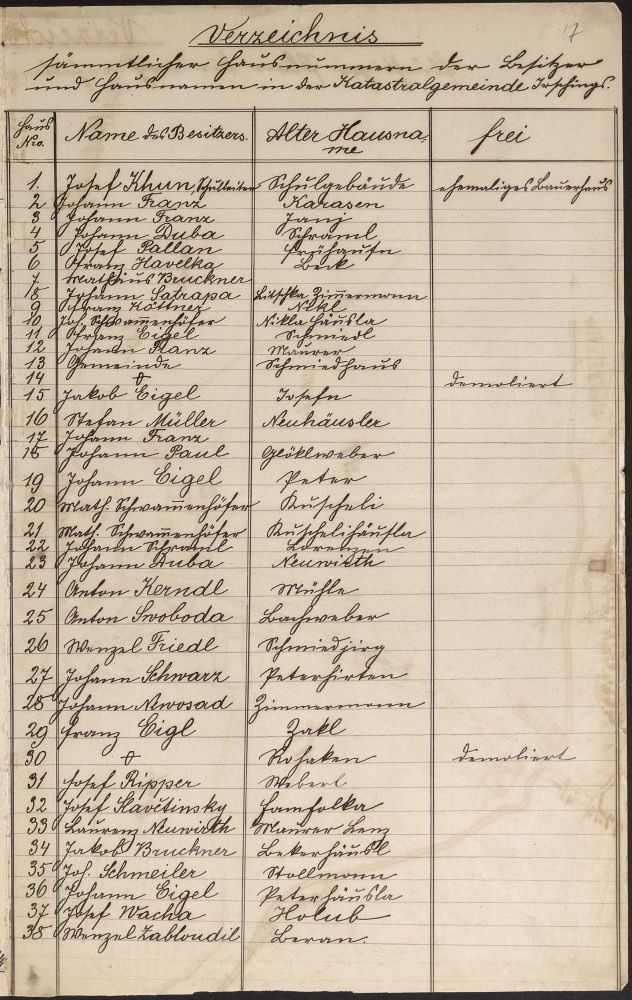 17
Verzeichnis
sämmtlicher Hausnummern der Besitzer
und Hausnamen in der Katastralgemeinde Irschings.
Haus Nro. Name des Besitzers. Alter Hausname frei
1. Josef Khun, Schulleiter Schulgebäude ehemaliges Bauerhaus
2 Johann Franz Karasen
3 Johann Franz Janj
4 Johann Duba Schraml
5 Josef Pallan
6 Franz Havelka Beck
7 Mathäus Bruckner
8 Johann Satrapa Litschka Zimmermann
9 Franz Köttner Nikl
10 Joh. Schwam̅enhöfer Nikla Häusla
11 Franz Eigel Schmiedl
12 Johann Franz Maurer
13 Gemeinde Schmiedhaus
14 † demoliert
15 Jakob Eigel Josefn
16 Stefan Müller Neuhäusler
17 Johann Franz
18 Johann Paul Glöklweber
19 Johann Eigel Peter
20 Math. Schwam̅enhöfer Kuscheli
21 Math. Schwam̅enhöfer Kuschelihäusla
22 Johann Schraml Lorenzen
23 Johann Duba Neuwirth
24 Anton Kerndl Mühle
25 Anton Swoboda Bachweber
26 Wenzel Friedl Schmiedjirg
27 Johann Schwarz Peterhirten
28 Johann Nwosad Zimmermann
29 Franz Eigl Zakl
30 † Rohaken demoliert
31 Josef Ripper Weberl
32 Josef Slavětinsky Hamfolka
33 Laurenz Neuwirth Maurer Lenz
34 Jakob Bruckner Bekerhäusl
35 Joh. Schmeiler Stollmann
36 Johann Eigel Peterhäusla
37 Josef Wacha Holub
38 Wenzel Zabloudil Beran.